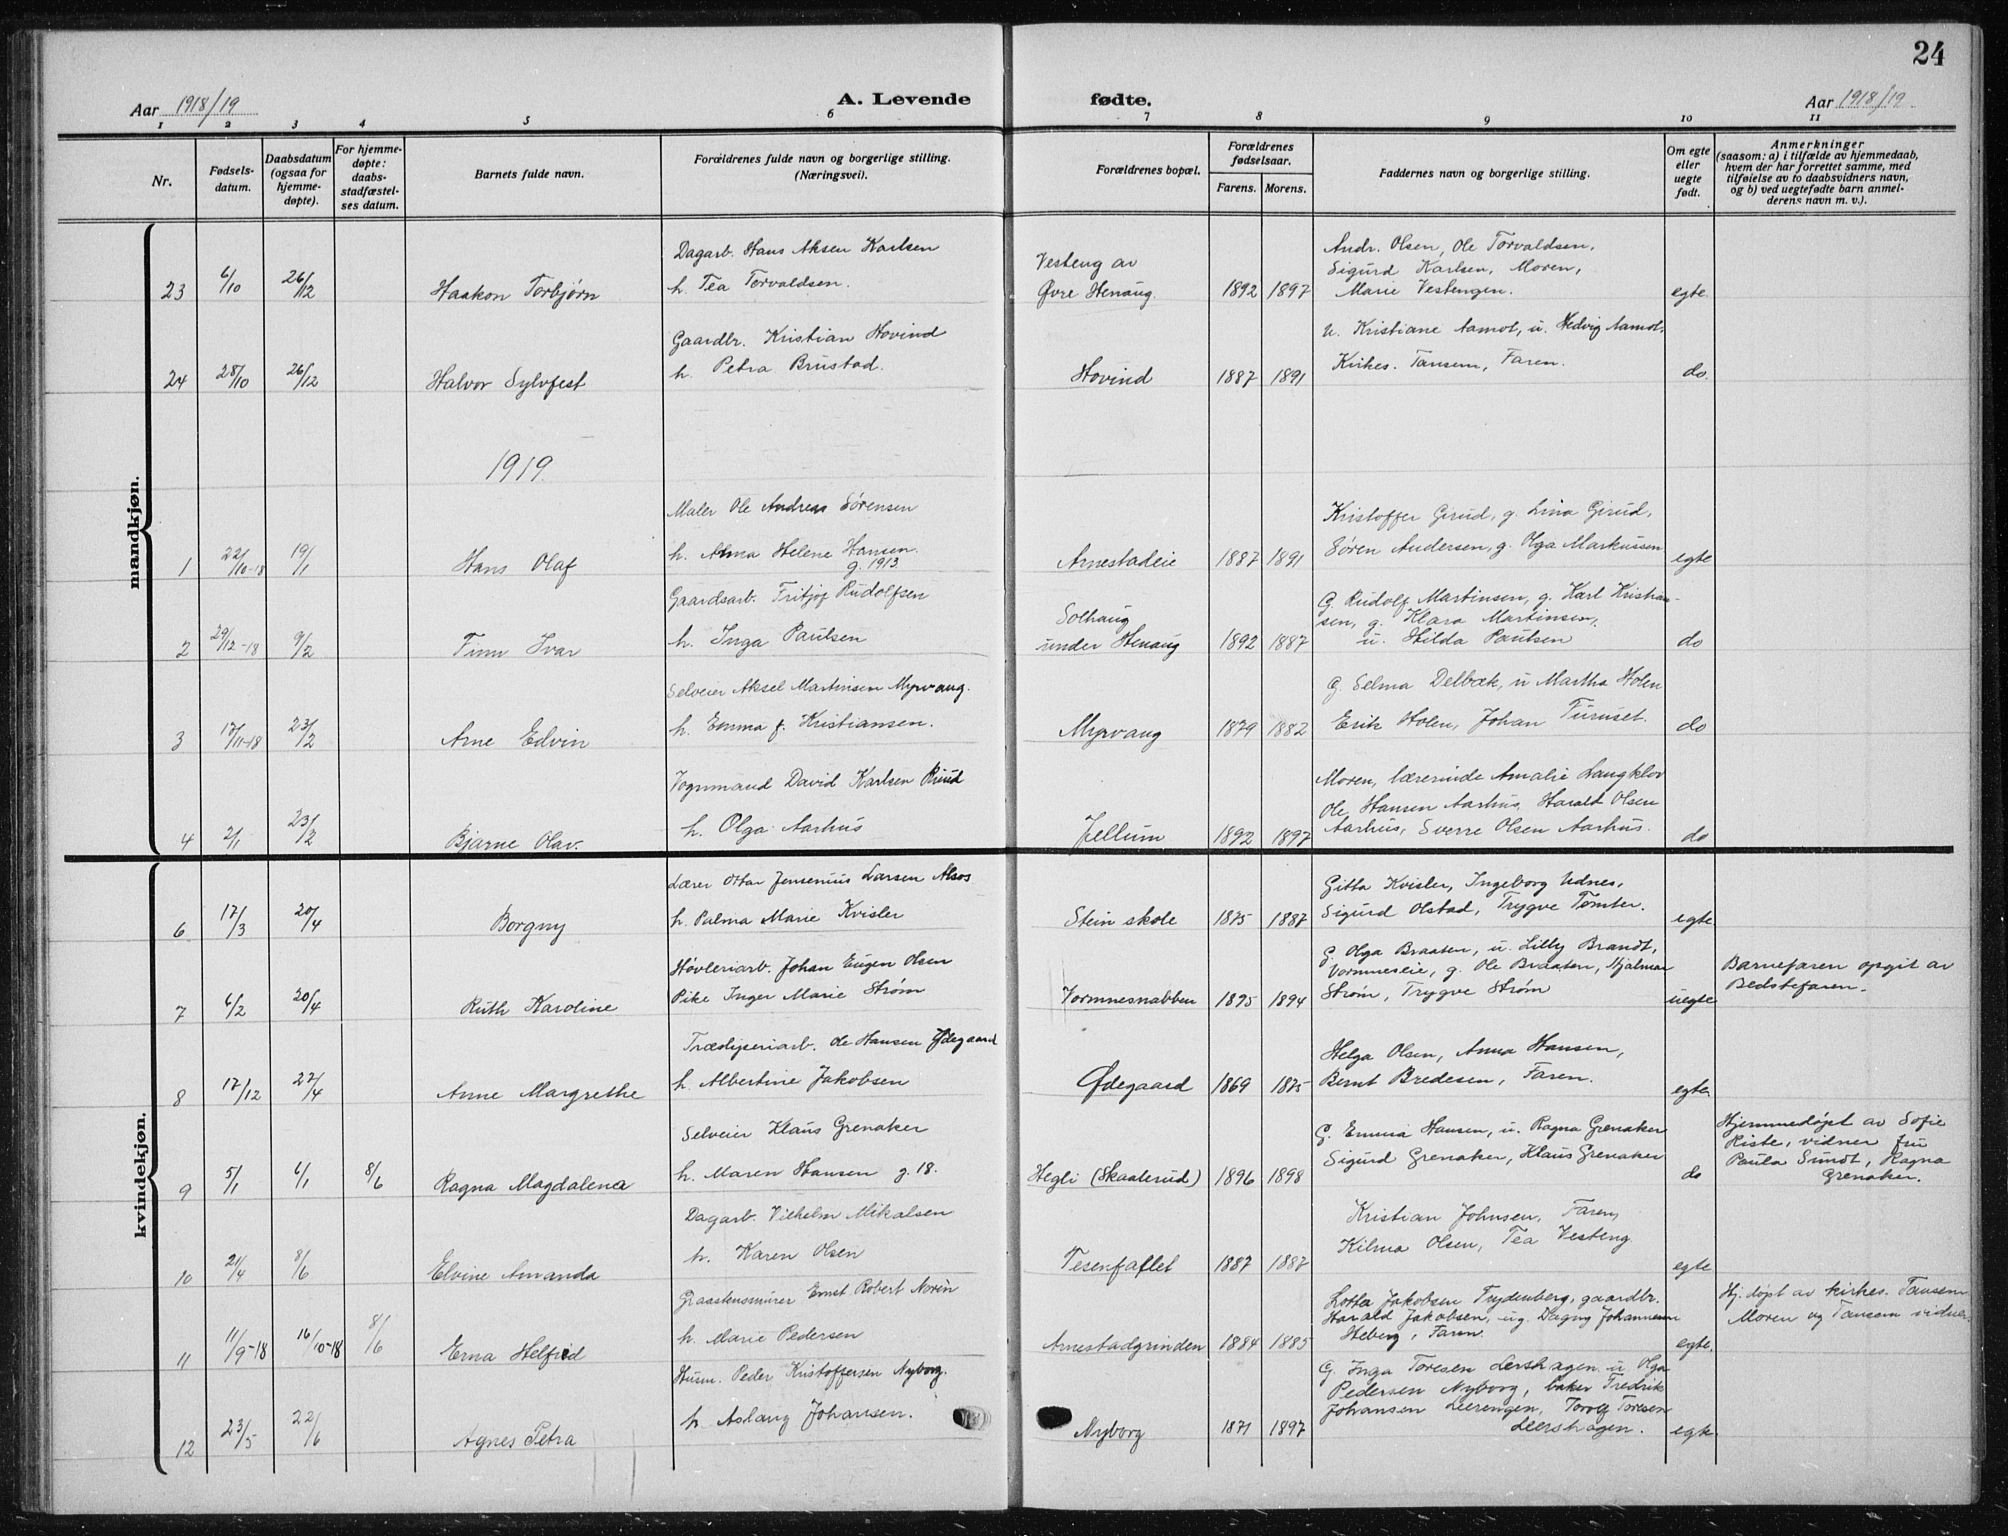 24
Aar 1918/19 A. Levende fødte. Aar 1918/19.
1 2 3 4 5 6 7 8 9 10 11
Nr.
Fødsels-
datum.
Daabsdatum
(ogsaa for
hjemme-
døpte).
For hjemme-
døpte:
daabs-
stadfæstel-
ses datum.
Barnets fulde navn.
Forældrenes fulde navn og borgerlige stilling.
(Næringsvei).
Forældrenes bopæl.
Forældrenes
fødselsaar.
Farens. Morens.
Faddernes navn og borgerlige stilling.
Om egte
eller
uegte
født.
Anmerkninger
(saasom: a) i tilfælde av hjemmedaab,
hvem der har forrettet samme, med
tilføielse av to daabsvidners navn,
og b) ved uegtefødte barn anmel-
derens navn m. v.).
mandkjøn.
Dagarb. Hans Aksen Karlsen
h. Tea Torvaldsen.
23 6/10 26/12 Haakon Torbjørn
Vesteng av
Øvre Henaug. 1892 1897
Andr. Olsen, Ole Torvaldsen,
Sigurd Karlsen, Moren,
Marie Vestengen. egte.
Gaardbr. Kristian Hovind
h. Petra Brustad.
24 28/10 26/12 Halvor Sylvfest
Hovind 1887 1891
u. Kristiane Aamot, u. Hedvig Aamot,
Kirkes. Tansem, Faren. do.
1919.
Maler Ole Andreas Sørensen
h. Alma Helene Hansen.
g. 1913
1 22/10-18 19/1 Hans Olaf
Arnestadeie 1887 1891
Kristoffer Girud, g. Lina Girud,
Søren Andersen, g. Olga Markussen egte
Gaardsarb. Fritjof Rudolfsen
h. Inga Paulsen
2 29/12-18 9/2 Finn Ivar
Solhaug
under Henaug 1892 1887
G. Rudolf Martinsen, g. Karl Kristian-
sen, g. Klara Martinsen,
u. Hilda Paulsen do
Selveier Aksel Martinsen Myrvang.
h. Emma f. Kristiansen.
3 17/11-18 23/2 Arne Edvin
Myrvang 1879 1882
G. Selma Delbæk, u Martha Holen
Erik Holen, Johan Furuset. do
Vognmand David Karlsen Ruud
h. Olga Aarhus
4 2/1 23/2 Bjarne Olav.
Jellum 1892 1897
Moren, lærerinde Amalie Langklov
Ole Hansen Aarhus, Harald Olsen
Aarhus, Sverre Olsen Aarhus. do
kvindekjøn.
Lærer Ottar Jensenius Larsen Alsos
h. Palma Marie Kvisler
6 17/3 20/4 Borgny
Stein skole 1875 1887
Gitta Kvisler, Ingeborg Udnes,
Sigurd Olstad, Trygve Tømter. egte
Høvleriarb. Johan Eugen Olsen
Pike Inger Marie Strøm
7 6/2 20/4 Ruth Karoline
Vormnesnabben 1895 1894
G. Olga Braaten, u. Lilly Brandt,
Vormneseie, g. Ole Braaten, Hjalmar
Strøm, Trygve Strøm uegte
Barnefaren opgit av
Bedstefaren.
Træsliperiarb. Ole Hansen Ødegaard
h. Albertine Jakobsen
8 17/12 27/4 Anne Margrethe
Ødegaard 1869 1875
Helga Olsen, Anna Hansen,
Bernt Bredesen, Faren. egte.
Selveier Klaus Grenaker
h. Maren Hansen g. 18.
9 5/1 6/1 8/6 Ragna Magdalena
Hegli (Skaalerud) 1896 1898
G. Emma Hansen, u. Ragna Grenaker
Sigurd Grenaker, Klaus Grenaker do
Hjemmedøpt av Sofie
Riste, vidner fru
Paula Sundt, Ragna
Grenaker.
Dagarb. Vilhelm Mikalsen
h. Karen Olsen
10 21/4 8/6 Elvine Amanda
Tesenfaflet 1887 1887
Kristian Johnsen, Faren,
Kilma Olsen, Tea Vesteng
egte
Graastensmurer Ernst Robert Norén
h. Marie Pedersen
11 11/9-18 16/10-18 8/6 Erna Helfrid
Arnestadgrinden 1884 1885
Lotta Jakobsen Frydenberg, gaardbr.
Harald Jakobsen, ug. Dagny Johannesen
Heberg, Faren. egte.
Hj. døpt av kirkes. Tansem
Moren og Tansem vidner.
Husm. Peder Kristoffersen Nyborg.
h. Aslaug Johansen.
12 23/5 22/6 Agnes Petra
Nyborg 1871 1897
G. Inga Toresen Leershagen u Olga
Pedersen Nyborg, baker Fredrik
Johansen Leerengen, Torolf Toresen
Leershagen. egte.